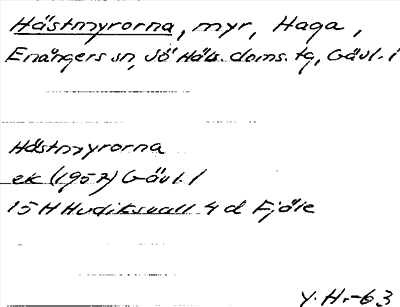 Hästmyrorna, myr, Haga,
Enångers sn, Sö Häls. doms. tg, Gävl. l
Hästmyrorna
ek (1957) Gävl. l
15 H Hudiksvall 4 d Fjäle
Y. Hr-63